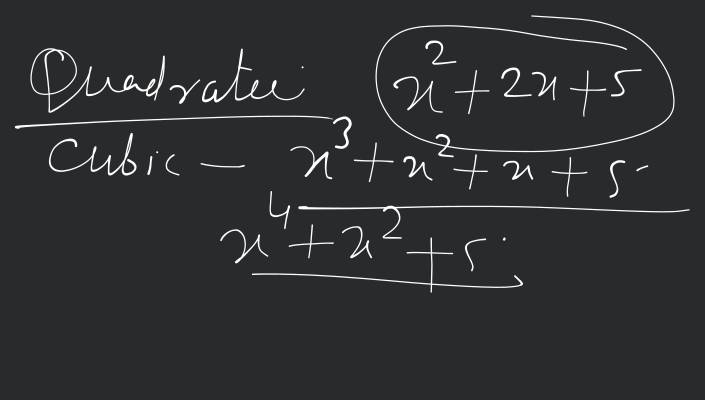 Quadratic x² + 2x + 5
Cubic - x³ + x² + x + 5
x⁴ + x² + 5